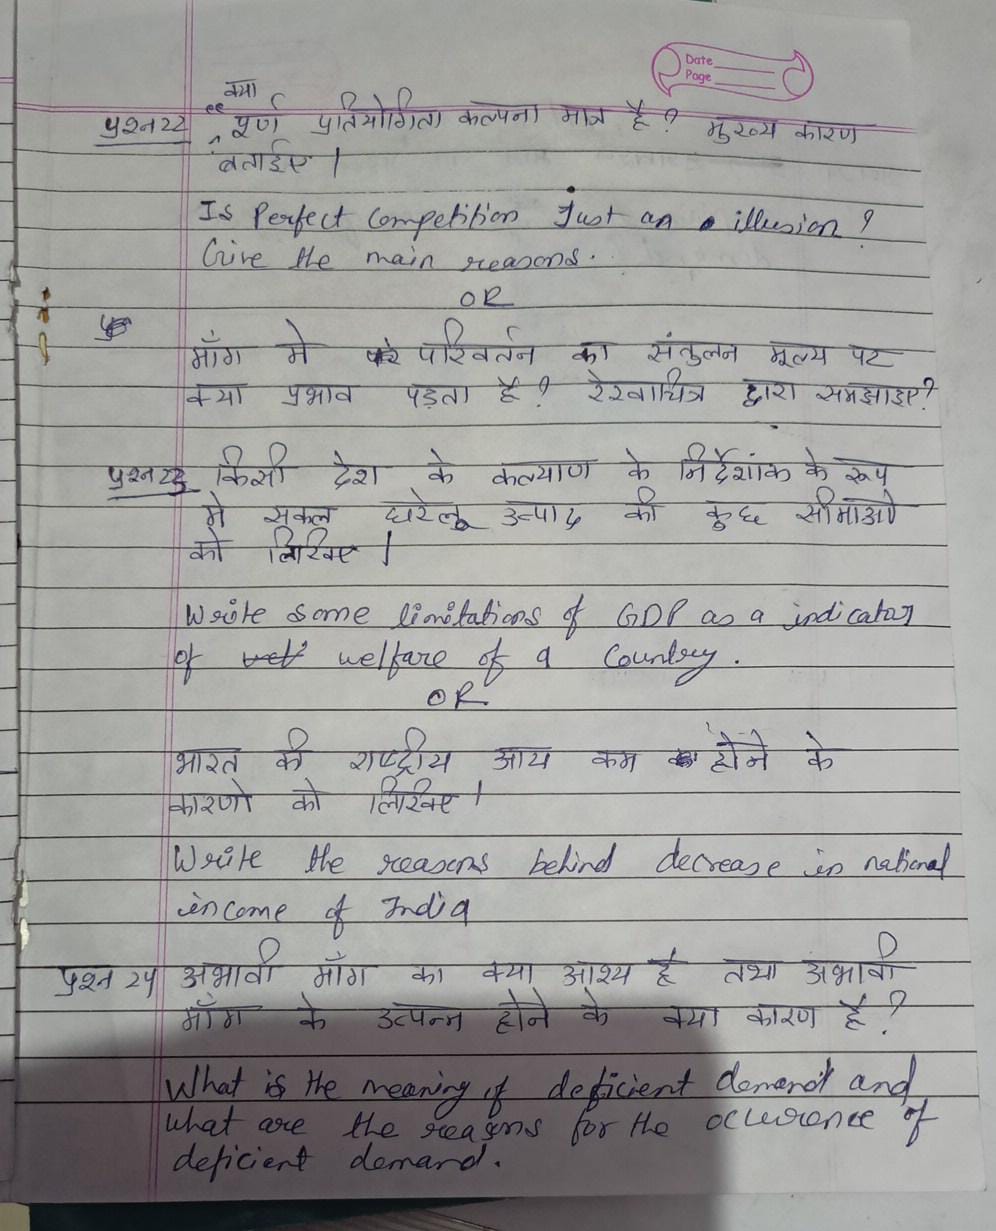 Date
Page
क्या
प्रश्न 22 "पूर्ण प्रतियोगिता कल्पना मात्र है? मुख्य कारण
बताईए |
Is Perfect Competition Just an illusion?
Give the main reasons.
OR
माँग मे परिवर्तन का संतुलन मूल्य पर
क्या प्रभाव पड़ता है? रेखाचित्र द्वारा समझाइए?
प्रश्न 23 किसी देश के कल्याण के निर्देशांक के रूप
मे सकल घरेलू उत्पाद की कुछ सीमाओ
को लिखिए |
Write some limitations of GDP as a indicator
of welfare of a Country.
OR
भारत की राष्ट्रीय आय कम होने के
कारणो को लिखिए |
Write the reasons behind decrease in national
income of India
प्रश्न 24 अभावी माँग का क्या आश्य है तथा अभावी
माँग के उत्पन्न होने के क्या कारण है?
What is the meaning of deficient demand and
what are the reasons for the occurence of
deficient demand.